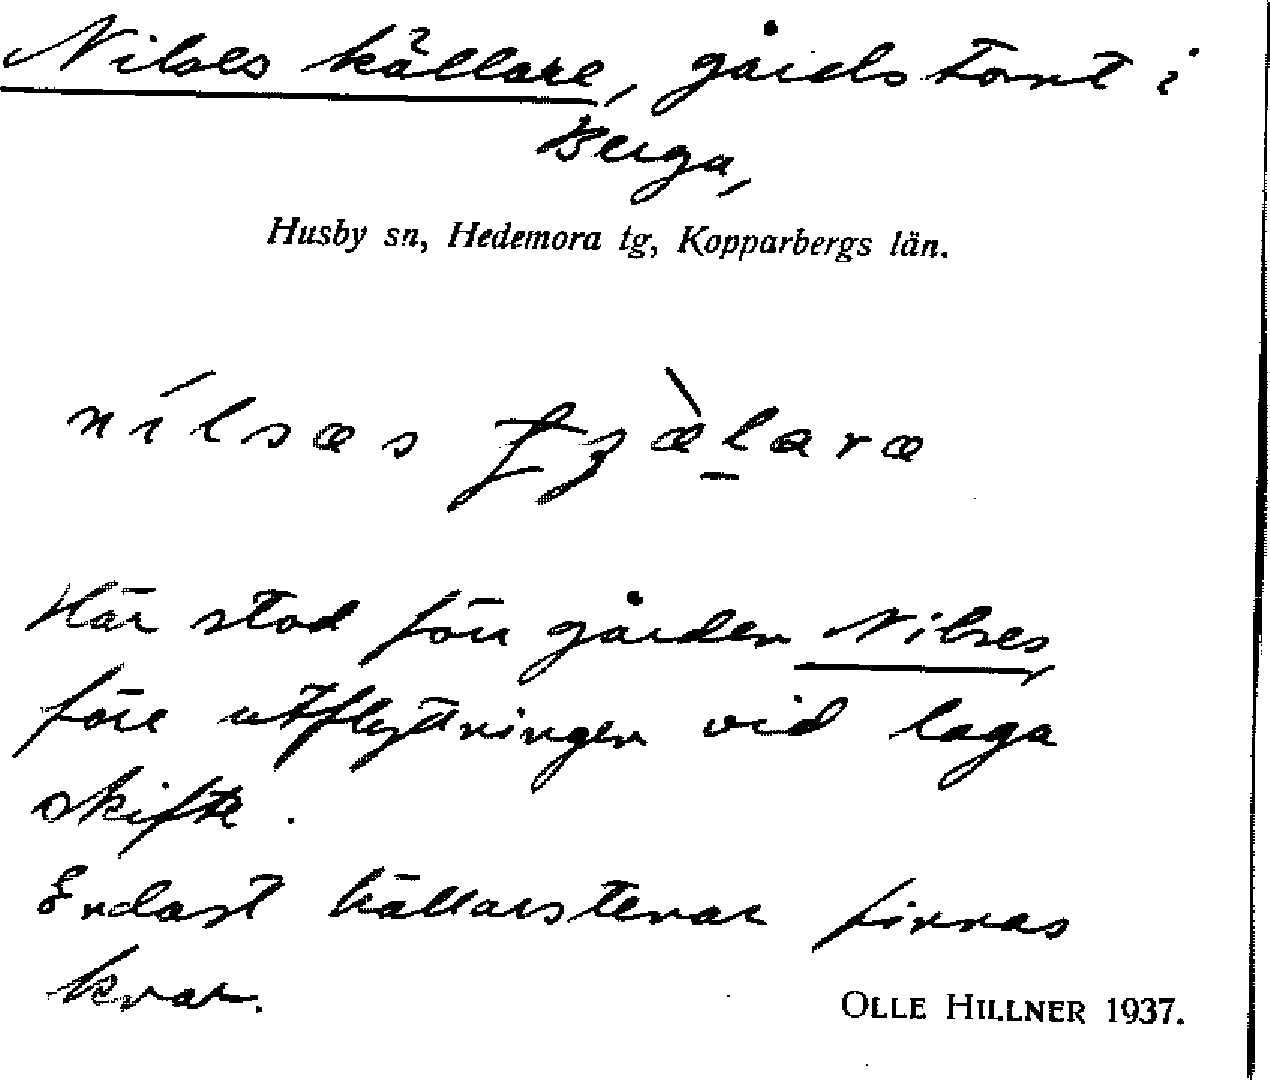 Nilses källare, gårdstomt i
Berga,
Husby sn, Hedemora tg, Kopparbergs län.
nílsæs
Här stod förr gården Nilses
före utflyttningen vid laga
skifte.
Endast källarstenar finnas
kvar.
OLLE HILLNER 1937.